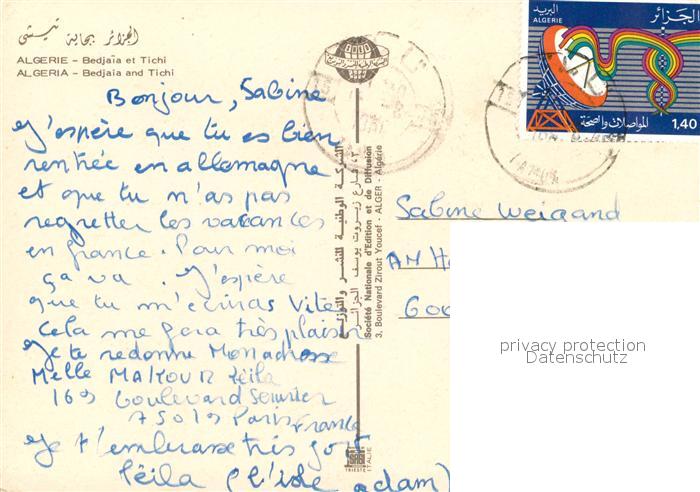 الجزائر بجاية تيشي
ALGERIE – Bedjaïa et Tichi
ALGERIA – Bedjaia and Tichi
Bonjour, Sabine
J'espère que tu es bien
rentrée en allemagne
et que tu n'as pas
regretter les vacances
en france. Pour moi
ça va. J'espère
que tu m'ecriras vite
Cela me fera très plaisir
Je te redonne Mon adresse
Melle MAKOUR Leïla
169 boulevard Serurier
75019 Paris France
Je t'embrasse très fort
Léila (l'isle adam)
الشركة الوطنية للنشر والتوزيع
٣، شارع زيروت يوسف الجزائر
Société Nationale d'Edition et de Diffusion
3, Boulevard Zirout Youcef - ALGER - Algérie
TRIESTE
ITALIE
البريد
ALGERIE
الجزائر
المواصلات والصحة
1,40
Sabine Weigand
AM H
600
privacy protection
Datenschutz